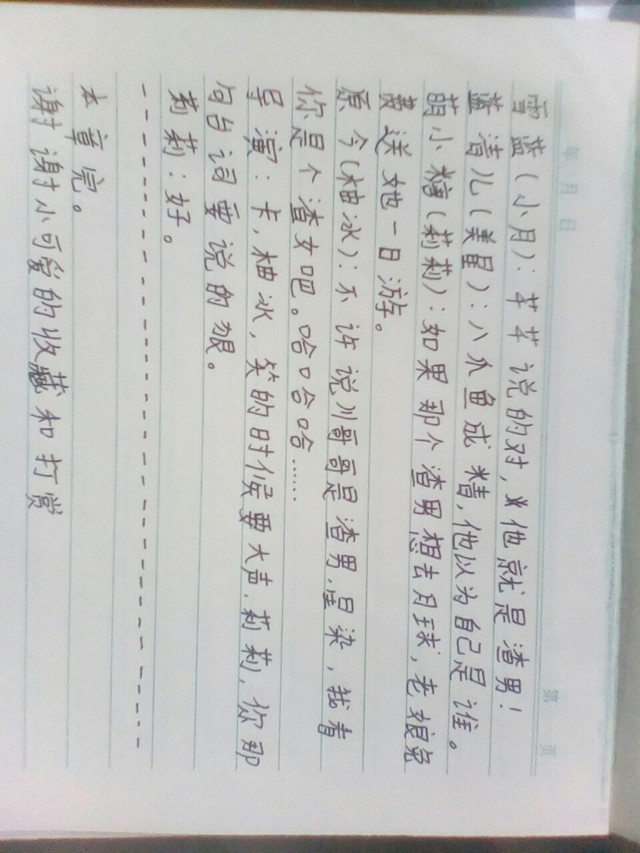 年 月 日
第 页
雪蓝(小月):芊芊说的对,他就是渣男!
蓝清儿(美星):八爪鱼成精,他以为自己是谁。
萌小糖(莉莉):如果那个渣男想去月球,老娘免
费送她一日游。
原今(柚冰):不许说川哥哥是渣男,星染,我看
你是个渣女吧。哈口合哈……
导演:卡,柚冰,笑的时候要大声.莉莉,你那
句台词要说的狠。
莉莉:好。
本章完。
谢谢小可爱的收藏和打赏